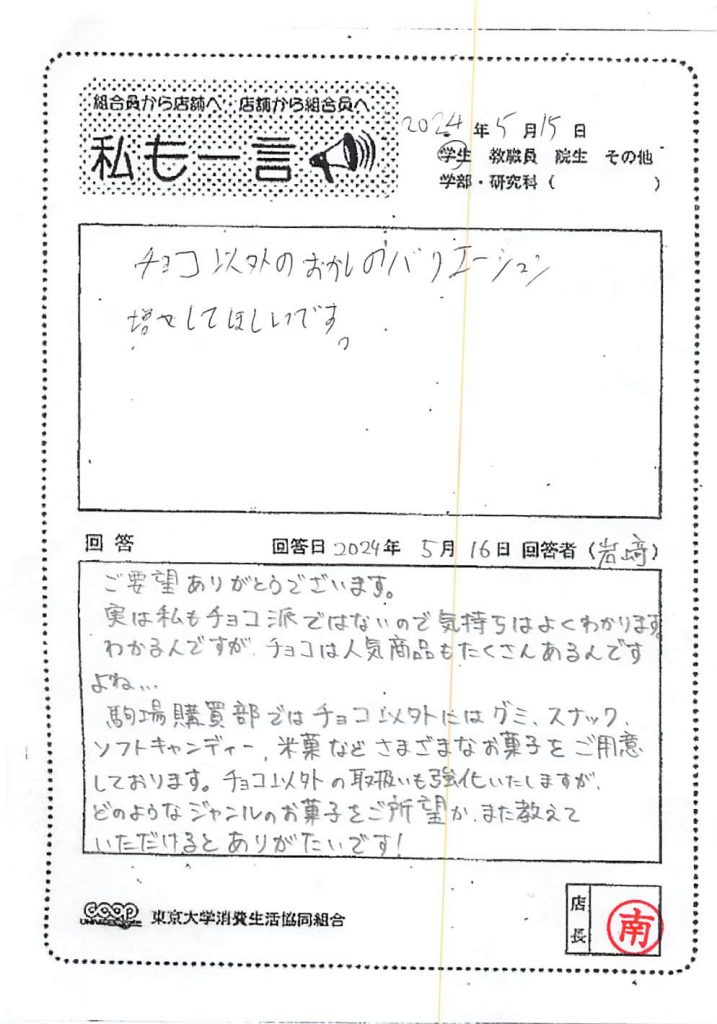 組合員から店舗へ 店舗から組合員へ
私も一言
2024年5月15日
学生 教職員 院生 その他
学部・研究科( )
チョコ以外のおかしのバリエーション
増やしてほしいです。
回答 回答日2024年 5月16日 回答者(岩崎)
ご要望ありがとうございます。
実は私もチョコ派ではないので気持ちはよくわかります
わかるんですが、チョコは人気商品もたくさんあるんです
よね...
駒場購買部ではチョコ以外にはグミ、スナック、
ソフトキャンディー、米菓などさまざまなお菓子をご用意
しております。チョコ以外の取扱いも強化いたしますが、
どのようなジャンルのお菓子をご所望か、また教えて
いただけるとありがたいです!
coop 東京大学消費生活協同組合
店長 南